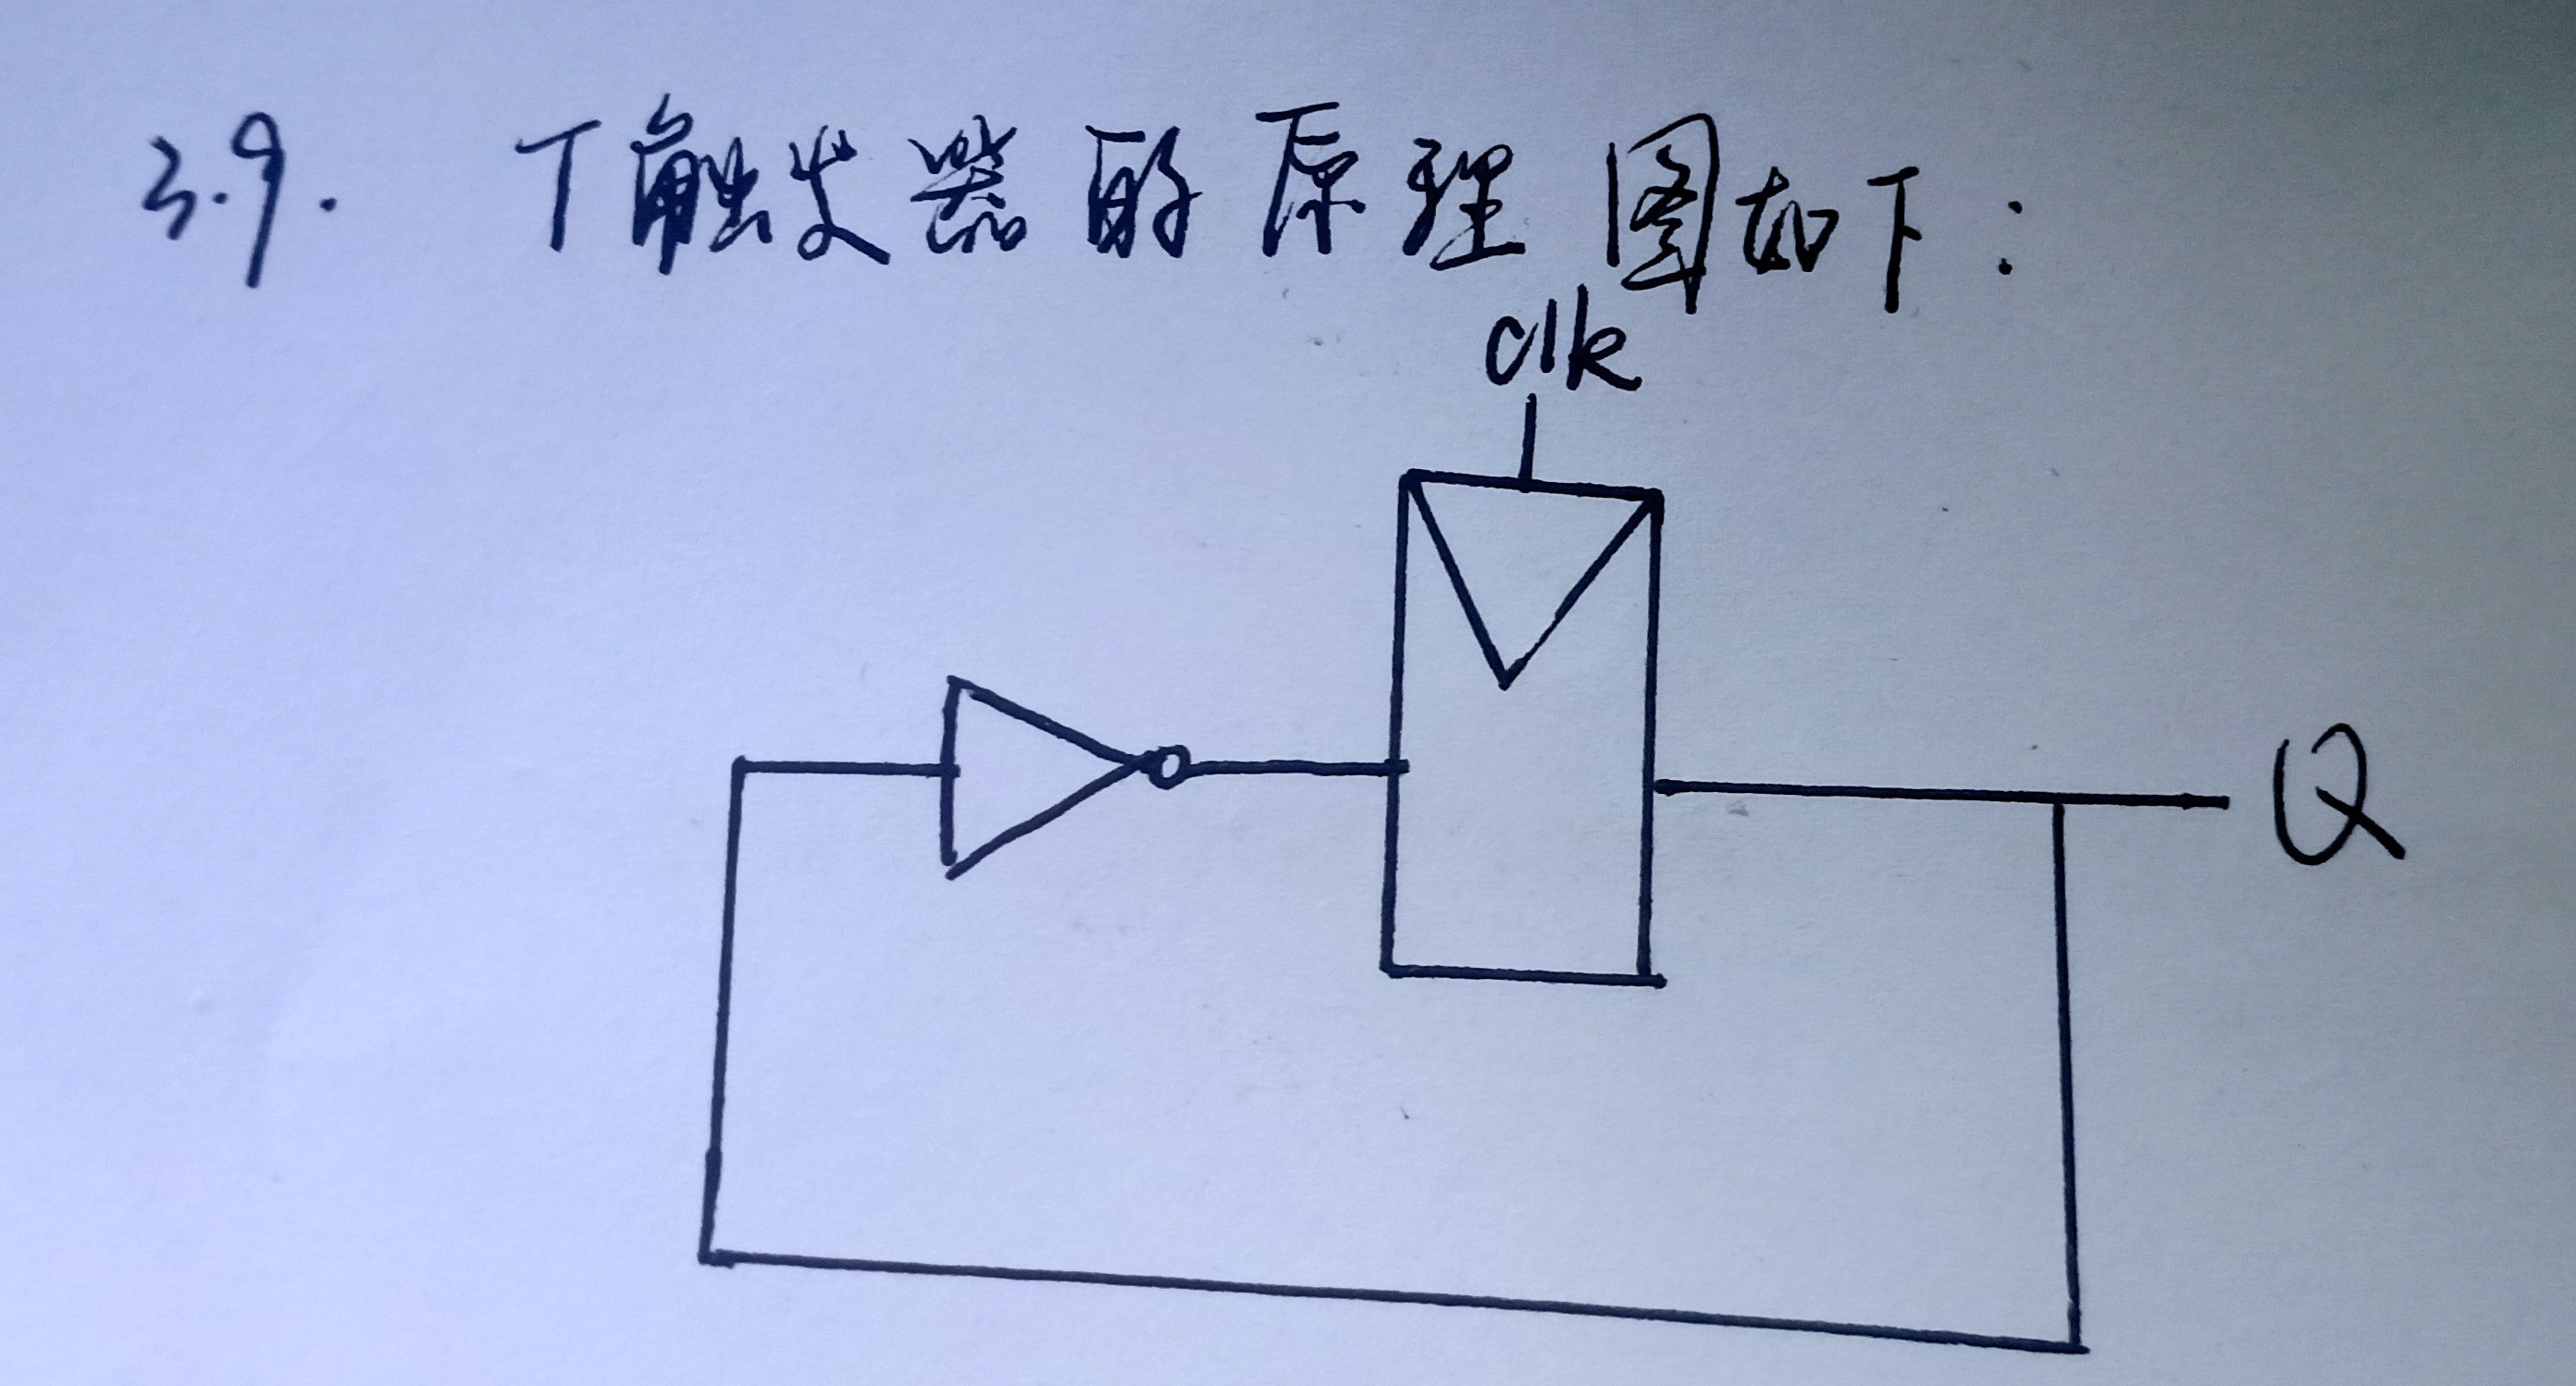 3.9. T触发器的原理图如下:
clk
Q